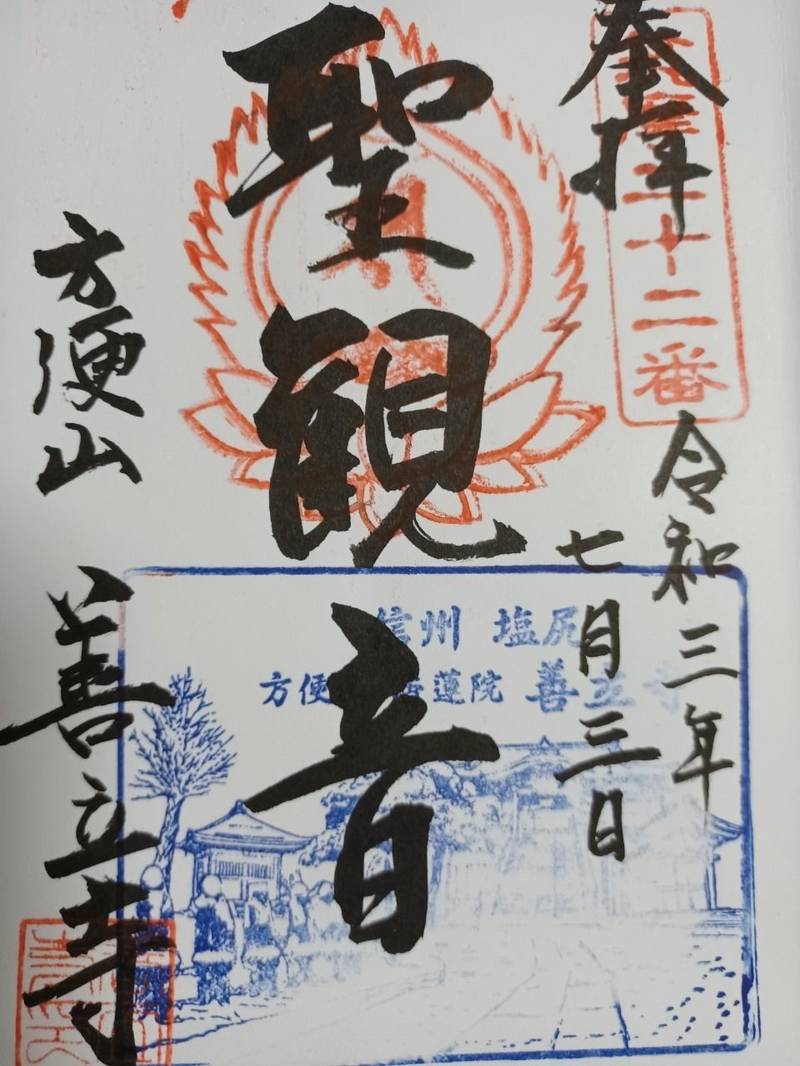 奉拝
十二番
令和三年
七月三日
聖観音
方便山 善立寺
信州 塩尻
方便 蓮院 善立寺